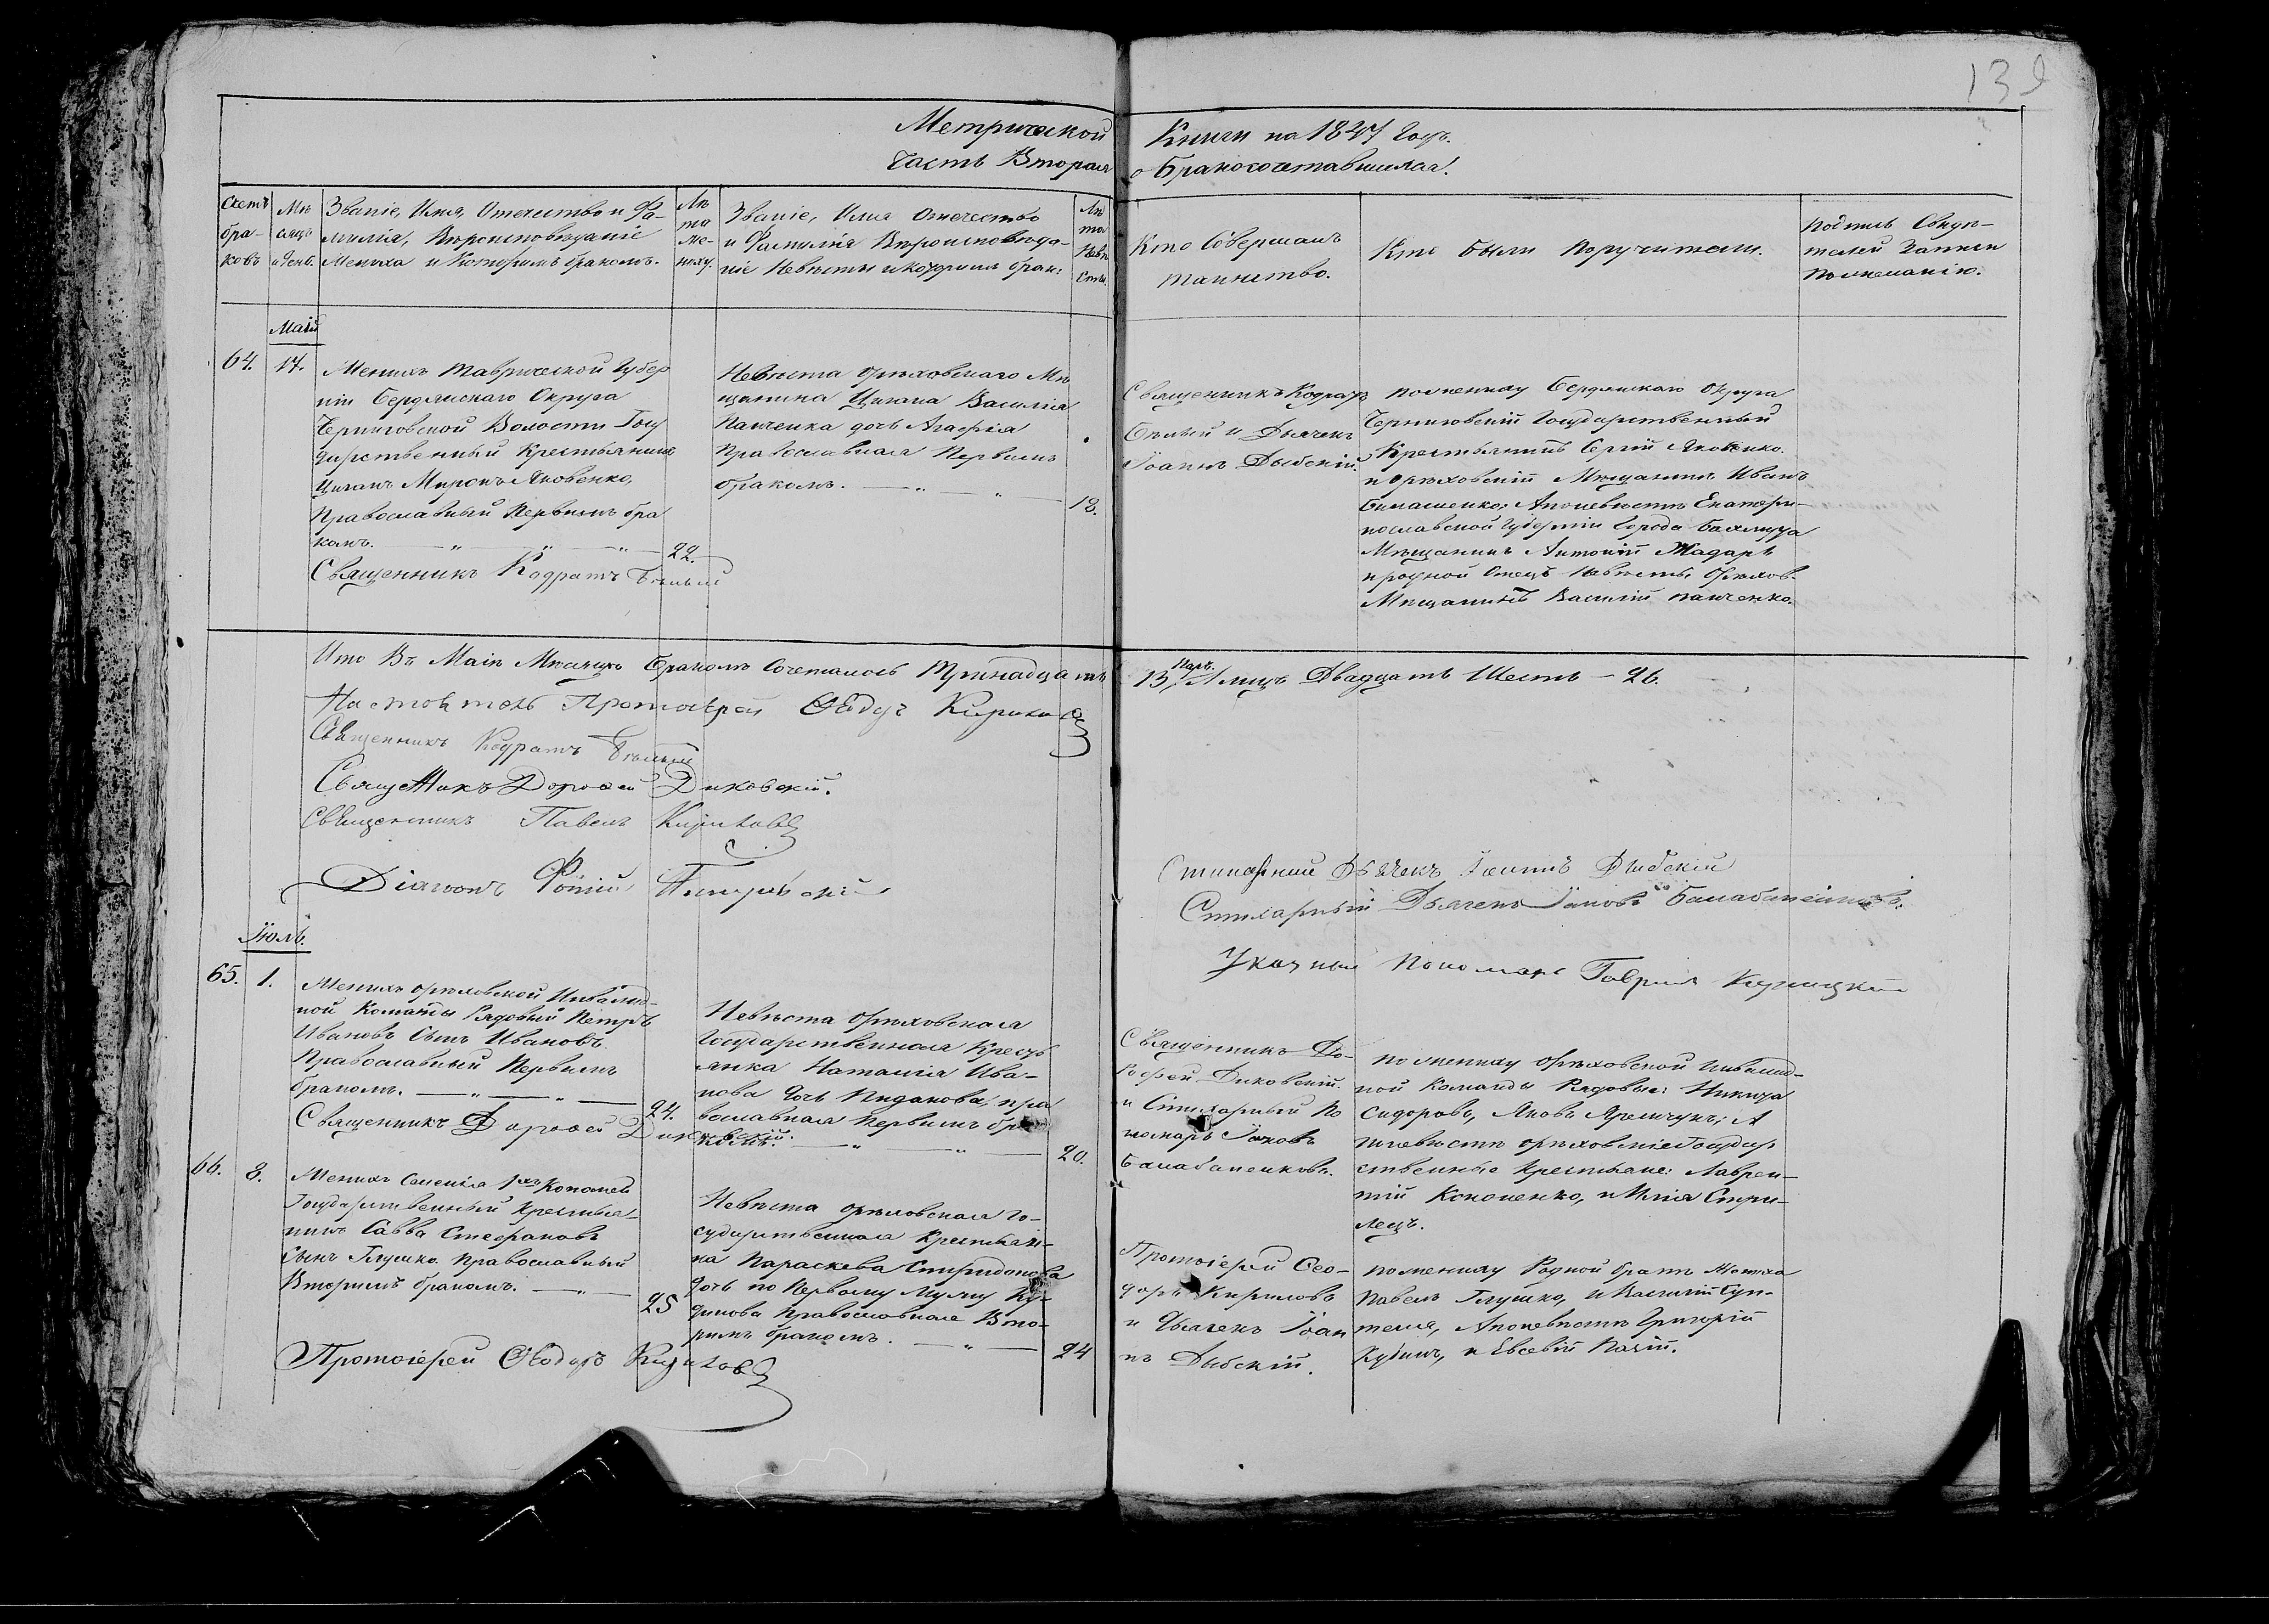 139
Метрической Книги на 1847 годъ.
Часть Вторая о Бракосочетавшихся.
Счетъ бра-ковъ
Мѣ сяцъ и день.
Званіе, Имя, Отечество и Фа-
милія, Вѣроисповѣданіе
Жениха и Которымъ бракомъ.
Лѣ та же-ниху.
Званіе, Имя Отечество
и Фамилія Вѣроисповѣда-
ніе Невѣсты и которымъ брак:
Лѣ та Невѣ сты.
Кто Совершалъ
таинство.
Кто были поручители.
Подпись Свидѣ-
телей записи
по желанію.
Маій
64. 17.
Женихъ Таврической Губер
ніи Бердянскаго Округа
Черниговской Волости Госу
дарственный Крестьянинъ
Цыганъ Миронъ Яковенко,
Православный Первымъ бра
комъ. — „ — „ — „ — 22.
Священникъ Кодратъ Бѣлый
Невѣста Орѣховскаго Мѣ
щанина Цыгана Василія
Панченка дочь Агафія
Православная Первымъ
бракомъ. — „ — „ — 18.
Священникъ Кодратъ
Бѣлый и Дьячекъ
Іоаннъ Дыбскій.
по жениху Бердянскаго Округа
Черниговскій Государственный
Крестьянинъ Сергій Яковенко.
и Орѣховскій Мѣщанинъ Иванъ
а по невѣстѣ Екатери-
нославской Губерніи города Бахмута
Мѣщанинъ Антоній Жадаръ
и родной Отецъ Невѣсты Орѣхов.
Мѣщанинъ Василій Панченко.
Итого Въ Маіи Мѣсяцѣ Бракомъ Сочеталось Тринадцать 13, паръ. Лицъ Двадцать Шесть — 26.
Настоятель Протоіерей Ѳеодоръ Кириловъ
Священникъ Кодратъ Бѣлый
Священникъ Дороѳей Диковскій.
Священникъ Павелъ Кириловъ
Діаконъ Фотій
Стихарный Дьячекъ Іоаннъ Дыбскій
Стихарный Дьячекъ Іаковъ Балабаненковъ.
Указный Пономарь Гавріилъ
Іюль.
65. 1.
Женихъ Орѣховской Инвалид-
ной Команды Рядовый Петръ
Ивановъ Сынъ Ивановъ.
Православный Первымъ
бракомъ. — „ — „ — 24.
Священникъ Дороѳей Диковскій.
Невѣста Орѣховская
Государственная Кресть
янка Наталія Ива-
нова дочь Кидакова, пра
вославная Первымъ бра
комъ. — „ — „ — 20.
Священникъ До-
роѳей Диковскій.
и Стихарный По
номарь Іаковъ
Балабаненковъ.
по жениху Орѣховской Инвалид-
ной Команды Рядовые: Никита
Сидоровъ, Яковъ А
по невѣстѣ Орѣховскіе Государ
ственные Крестьяне: Лаврен-
тій Кононенко, и Илія Стри-
лецъ.
66. 8.
Женихъ Селенія 1хъ Копаней
Государственный Крестья-
нинъ Савва Стефановъ
Сынъ Глушко православный
Вторымъ бракомъ. — „ — 25
Протоіерей Ѳеодоръ Кириловъ
Невѣста Орѣховская Го-
сударственная Крестьян-
ка Параскева Спиридонова
дочь по Первому Мужу Ку-
динова Православная Вто-
рымъ бракомъ. — „ — 24
Протоіерей Ѳео-
доръ Кириловъ
и Дьячекъ Іоан
нъ Дыбскій.
по жениху Родной братъ Жениха
Павелъ Глушко, и Василій Суп-
а по невѣстѣ Григорій
и Евсевій